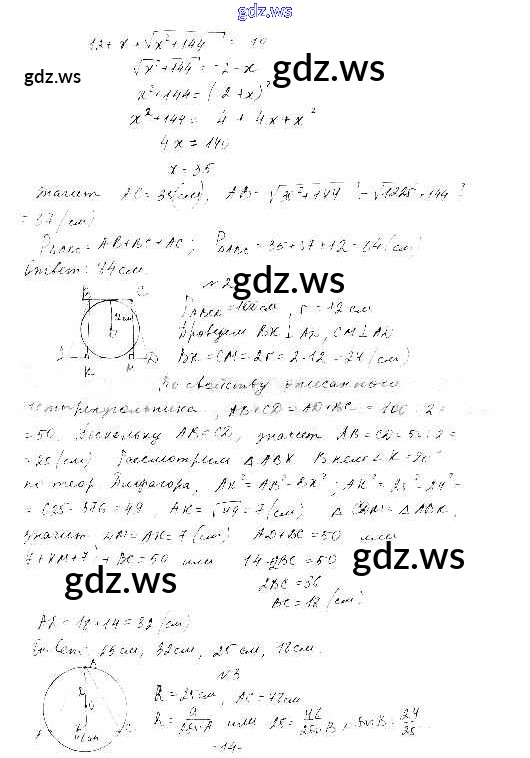 gdz.ws
12 + x + √x² + 144 = 10
√x² + 144 = -2 - x
gdz.ws
gdz.ws
x² + 144 = (2 + x)²
x² + 144 = 4 + 4x + x²
4x = 140
x = 35
значит AC = 35(см), AB = √35² + 144 = √1225 + 144 =
= 37(см)
P△ABC = AB + BC + AC; P△ABC = 35 + 37 + 12 = 84(см)
Ответ: 84 см.
gdz.ws
№2
B C
12 см
O
A D
K M
PABCD = 100 см, r = 12 см
Проведем BK ⊥ AD, CM ⊥ AD
BK = CM = 2r = 2·12 = 24(см)
По свойству описанного
четырехугольника, AB + CD = AD + BC = 100 : 2 =
= 50. Поскольку AB = CD, значит AB = CD = 50 : 2 =
= 25(см) Рассмотрим △ABK
по теор. Пифагора, AK² = AB² - BK², AK² = 25² - 24² =
= 625 - 576 = 49, AK = √49 = 7(см)
значит DM = AK = 7(см) AD + BC = 50 или
7 + KM + 7 + BC = 50 или 14 + 2BC = 50
gdz.ws
gdz.ws
2BC = 36
BC = 18(см)
AD = 18 + 14 = 32(см)
Ответ: 25 см, 32 см, 25 см, 18 см.
№3
B
O
A C
R = 25 см, AC = 48 см
R = a/2sinA или 25 = 48/2sinB, sinB = 24/25
-14-